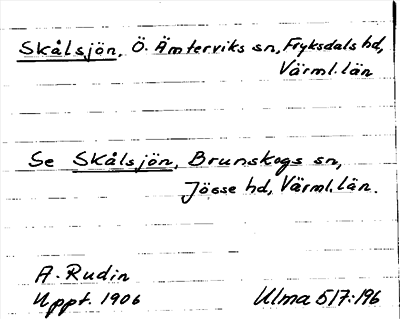 Skålsjön, Ö. Ämterviks sn, Fryksdals hd,
Värml. län
Se Skålsjön, Brunskogs sn,
Jösse hd, Värml. län.
A. Rudin
Uppt. 1906
Ulma 517:196